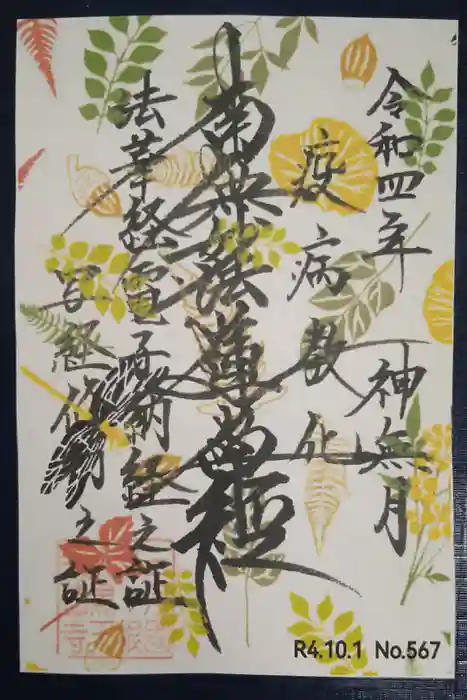 令和四年 神無月
疫病 化
南無妙法蓮華経
法華経電子納経之証
写経修 之証
R4.10.1 No.567